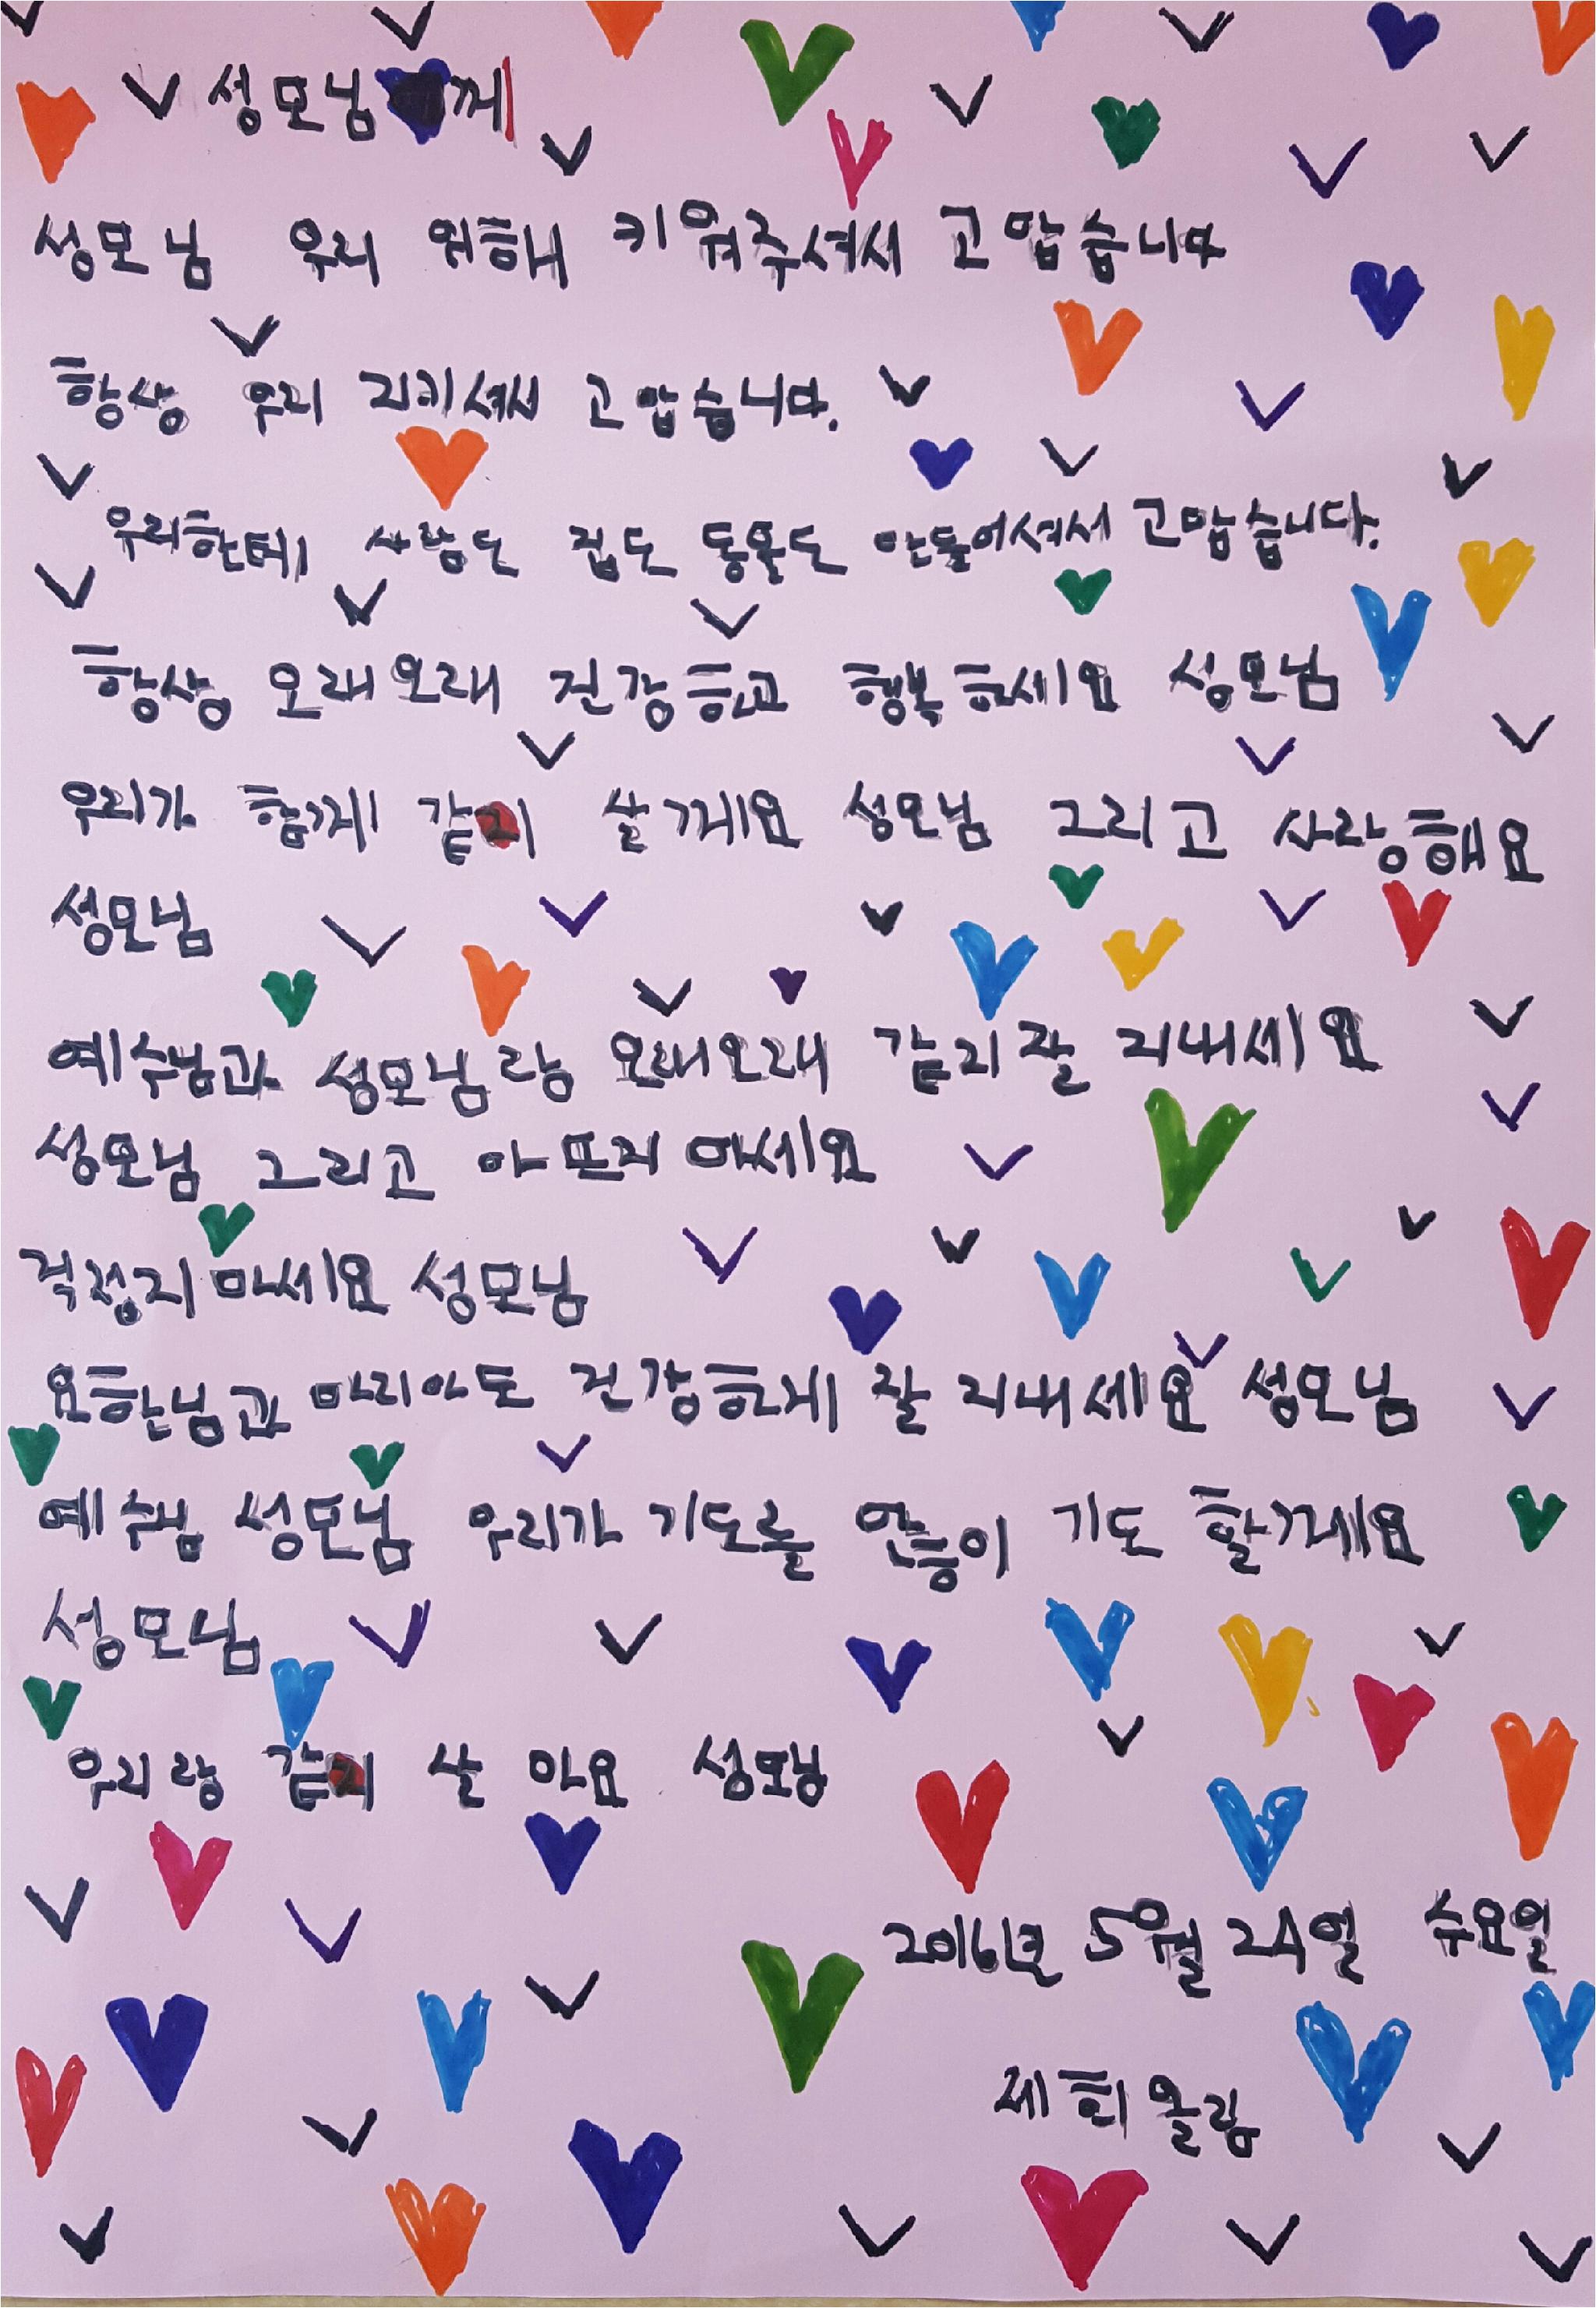 성모님께
성모님 우리 위해 키워주셔서 고맙습니다
항상 우리 지키셔서 고맙습니다.
우리한테 사람도 집도 동물도 만들어셔서 고맙습니다.
항상 오래오래 건강하고 행복하세요 성모님
우리가 함께 같이 살께요 성모님 그리고 사랑해요
성모님
예수님과 성모님랑 오래오래 같이 잘 지내세요
성모님 그리고 아프지 마세요
걱정지 마세요 성모님
요한님과 마리아도 건강하게 잘 지내세요 성모님
예수님 성모님 우리가 기도를 기도 할께요
성모님
우리랑 같이 살 아요
2016년 5월 24일 수요일
제희올림